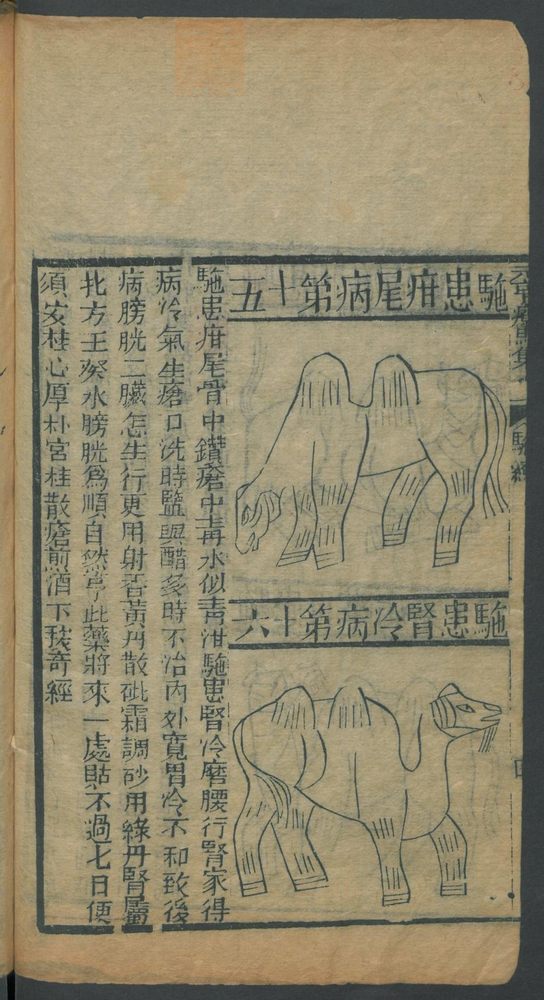 駝經
駞患疳尾病第十五
駞患腎冷病第十六
駞患疳尾骨中鑽瘡中青水似青泔駞患腎冷磨腰行腎家得
病冷氣生瘡口洗時鹽與醋多時不治内外寬胃冷不和致後
病膀胱二臟怎生行更用射香黃丹散砒霜調砂用綠丹腎屬
北方壬癸水膀胱爲順自然亨此藥將來一處貼不過七日便
須安桂心厚朴宮桂散瘡煎酒下発奇經